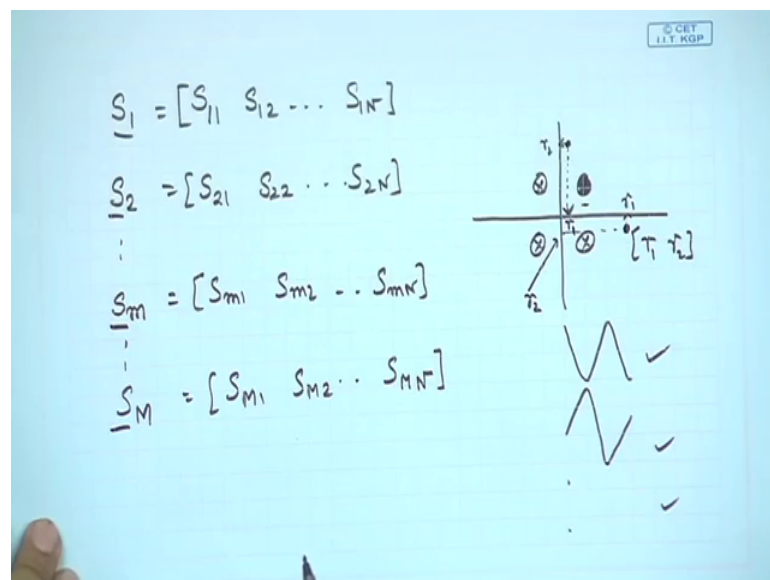 © CET
I.I.T. KGP
S1 = [S11 S12 ... S1N]
S2 = [S21 S22 ... S2N]
⋮
Sm = [Sm1 Sm2 .. SmN]
⋮
SM = [SM1 SM2 .. SMN]
r2
r1
r1
[r1 r2]
r2